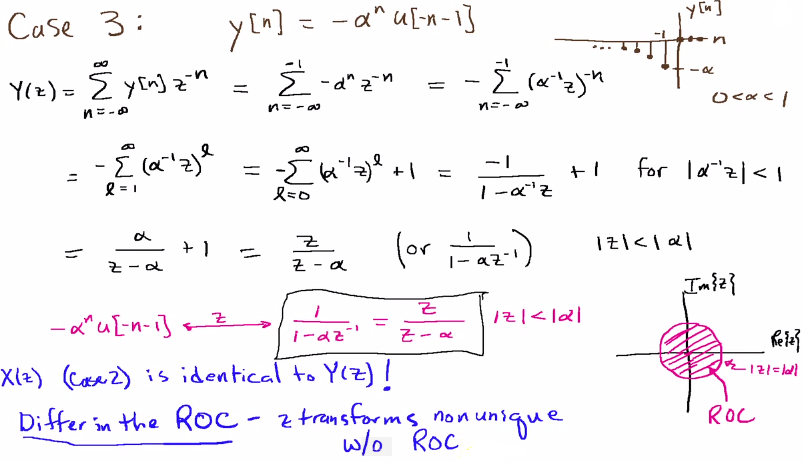 Case 3: y[n] = -α^n u[-n-1]
y[n]
-1
n
...
-α
0<α<1
Y(z) = ∑_{n=-∞}^{∞} y[n] z^{-n} = ∑_{n=-∞}^{-1} -α^n z^{-n} = - ∑_{n=-∞}^{-1} (α^{-1}z)^{-n}
= - ∑_{l=1}^{∞} (α^{-1}z)^l = - ∑_{l=0}^{∞} (α^{-1}z)^l + 1 = \frac{-1}{1-α^{-1}z} + 1 for |α^{-1}z| < 1
= \frac{α}{z-α} + 1 = \frac{z}{z-α} (or \frac{1}{1-αz^{-1}}) |z|<|α|
Im{z}
-α^n u[-n-1] ⟷^{z} \frac{1}{1-αz^{-1}} = \frac{z}{z-α} |z|<|α|
Re{z}
|z|=|α|
X(z) (Case 2) is identical to Y(z)!
ROC
Differ in the ROC - z transforms nonunique
w/o ROC